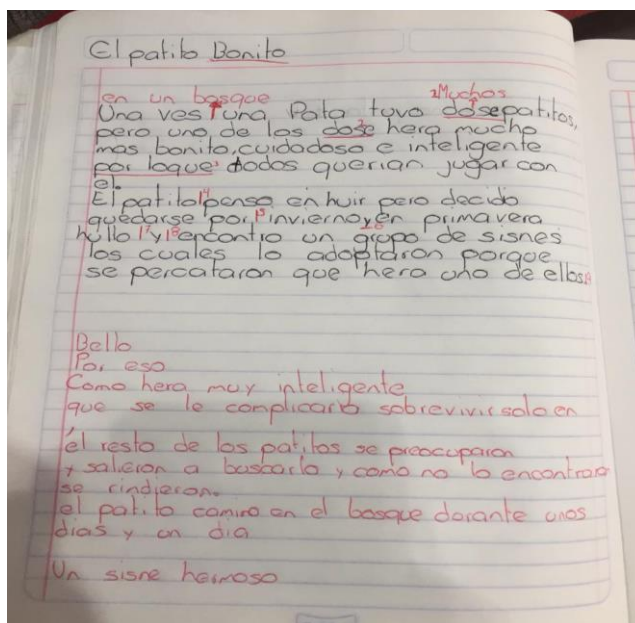 El patito Bonito
en un bosque Muchos
Una ves una Pata tuvo dosepatitos,
pero uno de los dose hera mucho
mas bonito,cuidadoso e inteligente
por loque todos querian jugar con
el.
El patito penso en huir pero decido
quedarse por invierno,en primavera
hullo y encontro un grupo de sisnes
los cuales lo adoptaron porque
se percataron que hera uno de ellos.
Bello
Por eso
Como hera muy inteligente
que se le complicaria sobrevivir solo en
el resto de los patitos se preocuparon
y salieron a buscarlo y como no lo encontraron
se rindieron.
el patito camino en el bosque durante unos
dias y un dia
Un sisne hermoso